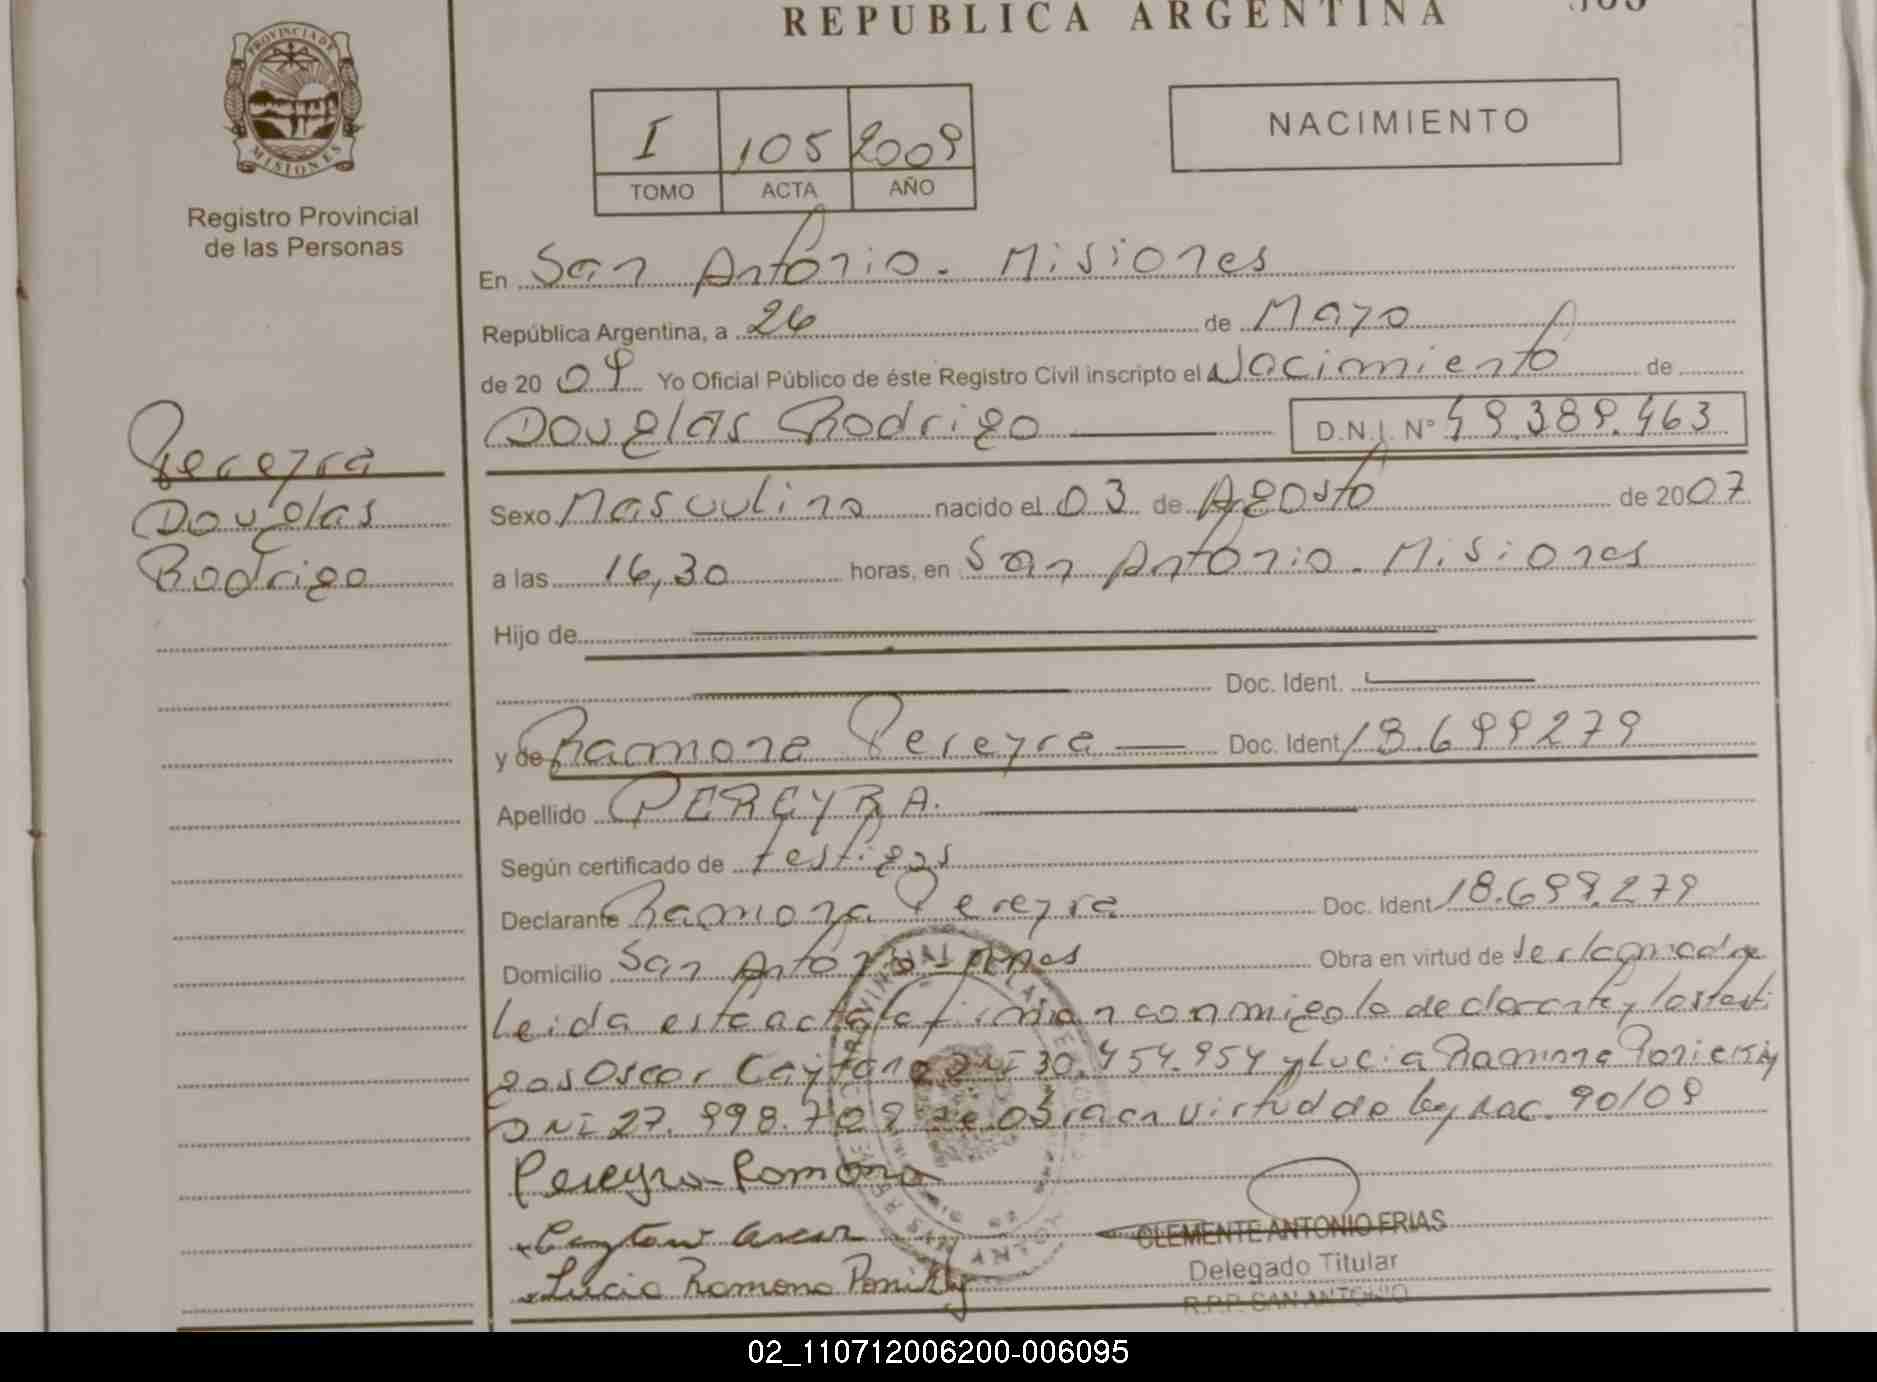 REPUBLICA ARGENTINA
PROVINCIA DE
MISIONES
Registro Provincial
de las Personas
I 105 2009
TOMO ACTA AÑO
NACIMIENTO
En San Antonio - Misiones
República Argentina, a 26 de Mayo
de 20 09 Yo Oficial Público de éste Registro Civil inscripto el Nacimiento de
Douglas Rodrigo D.N.I. N° 49.389.463
Pereyra
Douglas
Rodrigo
Sexo Masculino nacido el 03 de Agosto de 2007
a las 16,30 horas, en San Antonio - Misiones
Hijo de
Doc. Ident.
y de Ramona Pereyra Doc. Ident 18.699279
Apellido PEREYRA.
Según certificado de testigos
Declarante Ramona Pereyra Doc. Ident 18.699.279
Domicilio San Antonio Mnes Obra en virtud de ser la madre
leida esta acta la firman conmigo la declarante y los testi
gos Oscar Caytano DNI 30.454.954 y Lucia Ramona
DNI 27.998.709 se obra en virtud de ley nac. 90/09
Pereyra Ramona
Lucia Ramona
CLEMENTE ANTONIO FRIAS
Delegado Titular
R.P.P. SAN ANTONIO
02_110712006200-006095